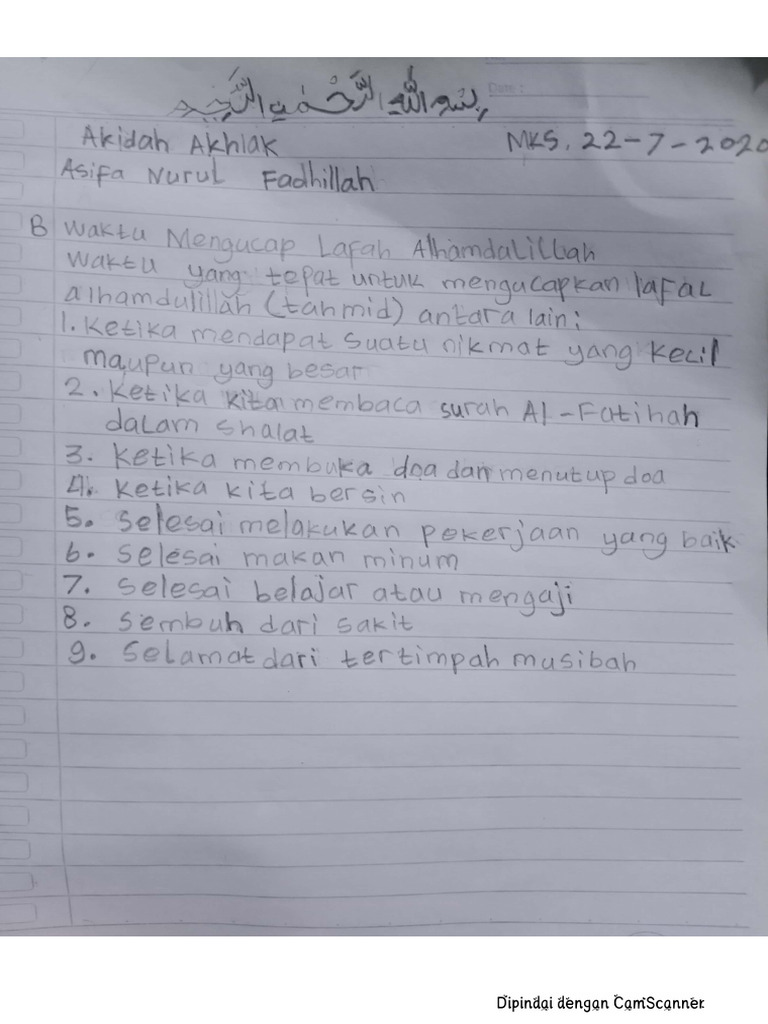 بِسْمِ اللَّهِ الرَّحْمَنِ الرَّحِيمِ
Date :
Akidah Akhlak
MKS, 22-7-2020
Asifa Nurul Fadhillah
B Waktu Mengucap Lafah Alhamdalillah
Waktu yang tepat untuk mengucapkan lafal
alhamdulillah (tahmid) antara lain:
1. Ketika mendapat suatu nikmat yang kecil
maupun yang besar
2. Ketika kita membaca surah Al-Fatihah
dalam shalat
3. Ketika membuka doa dan menutup doa
4. Ketika kita bersin
5. Selesai melakukan pekerjaan yang baik
6. Selesai makan minum
7. Selesai belajar atau mengaji
8. Sembuh dari sakit
9. Selamat dari tertimpah musibah
Dipindai dengan CamScanner